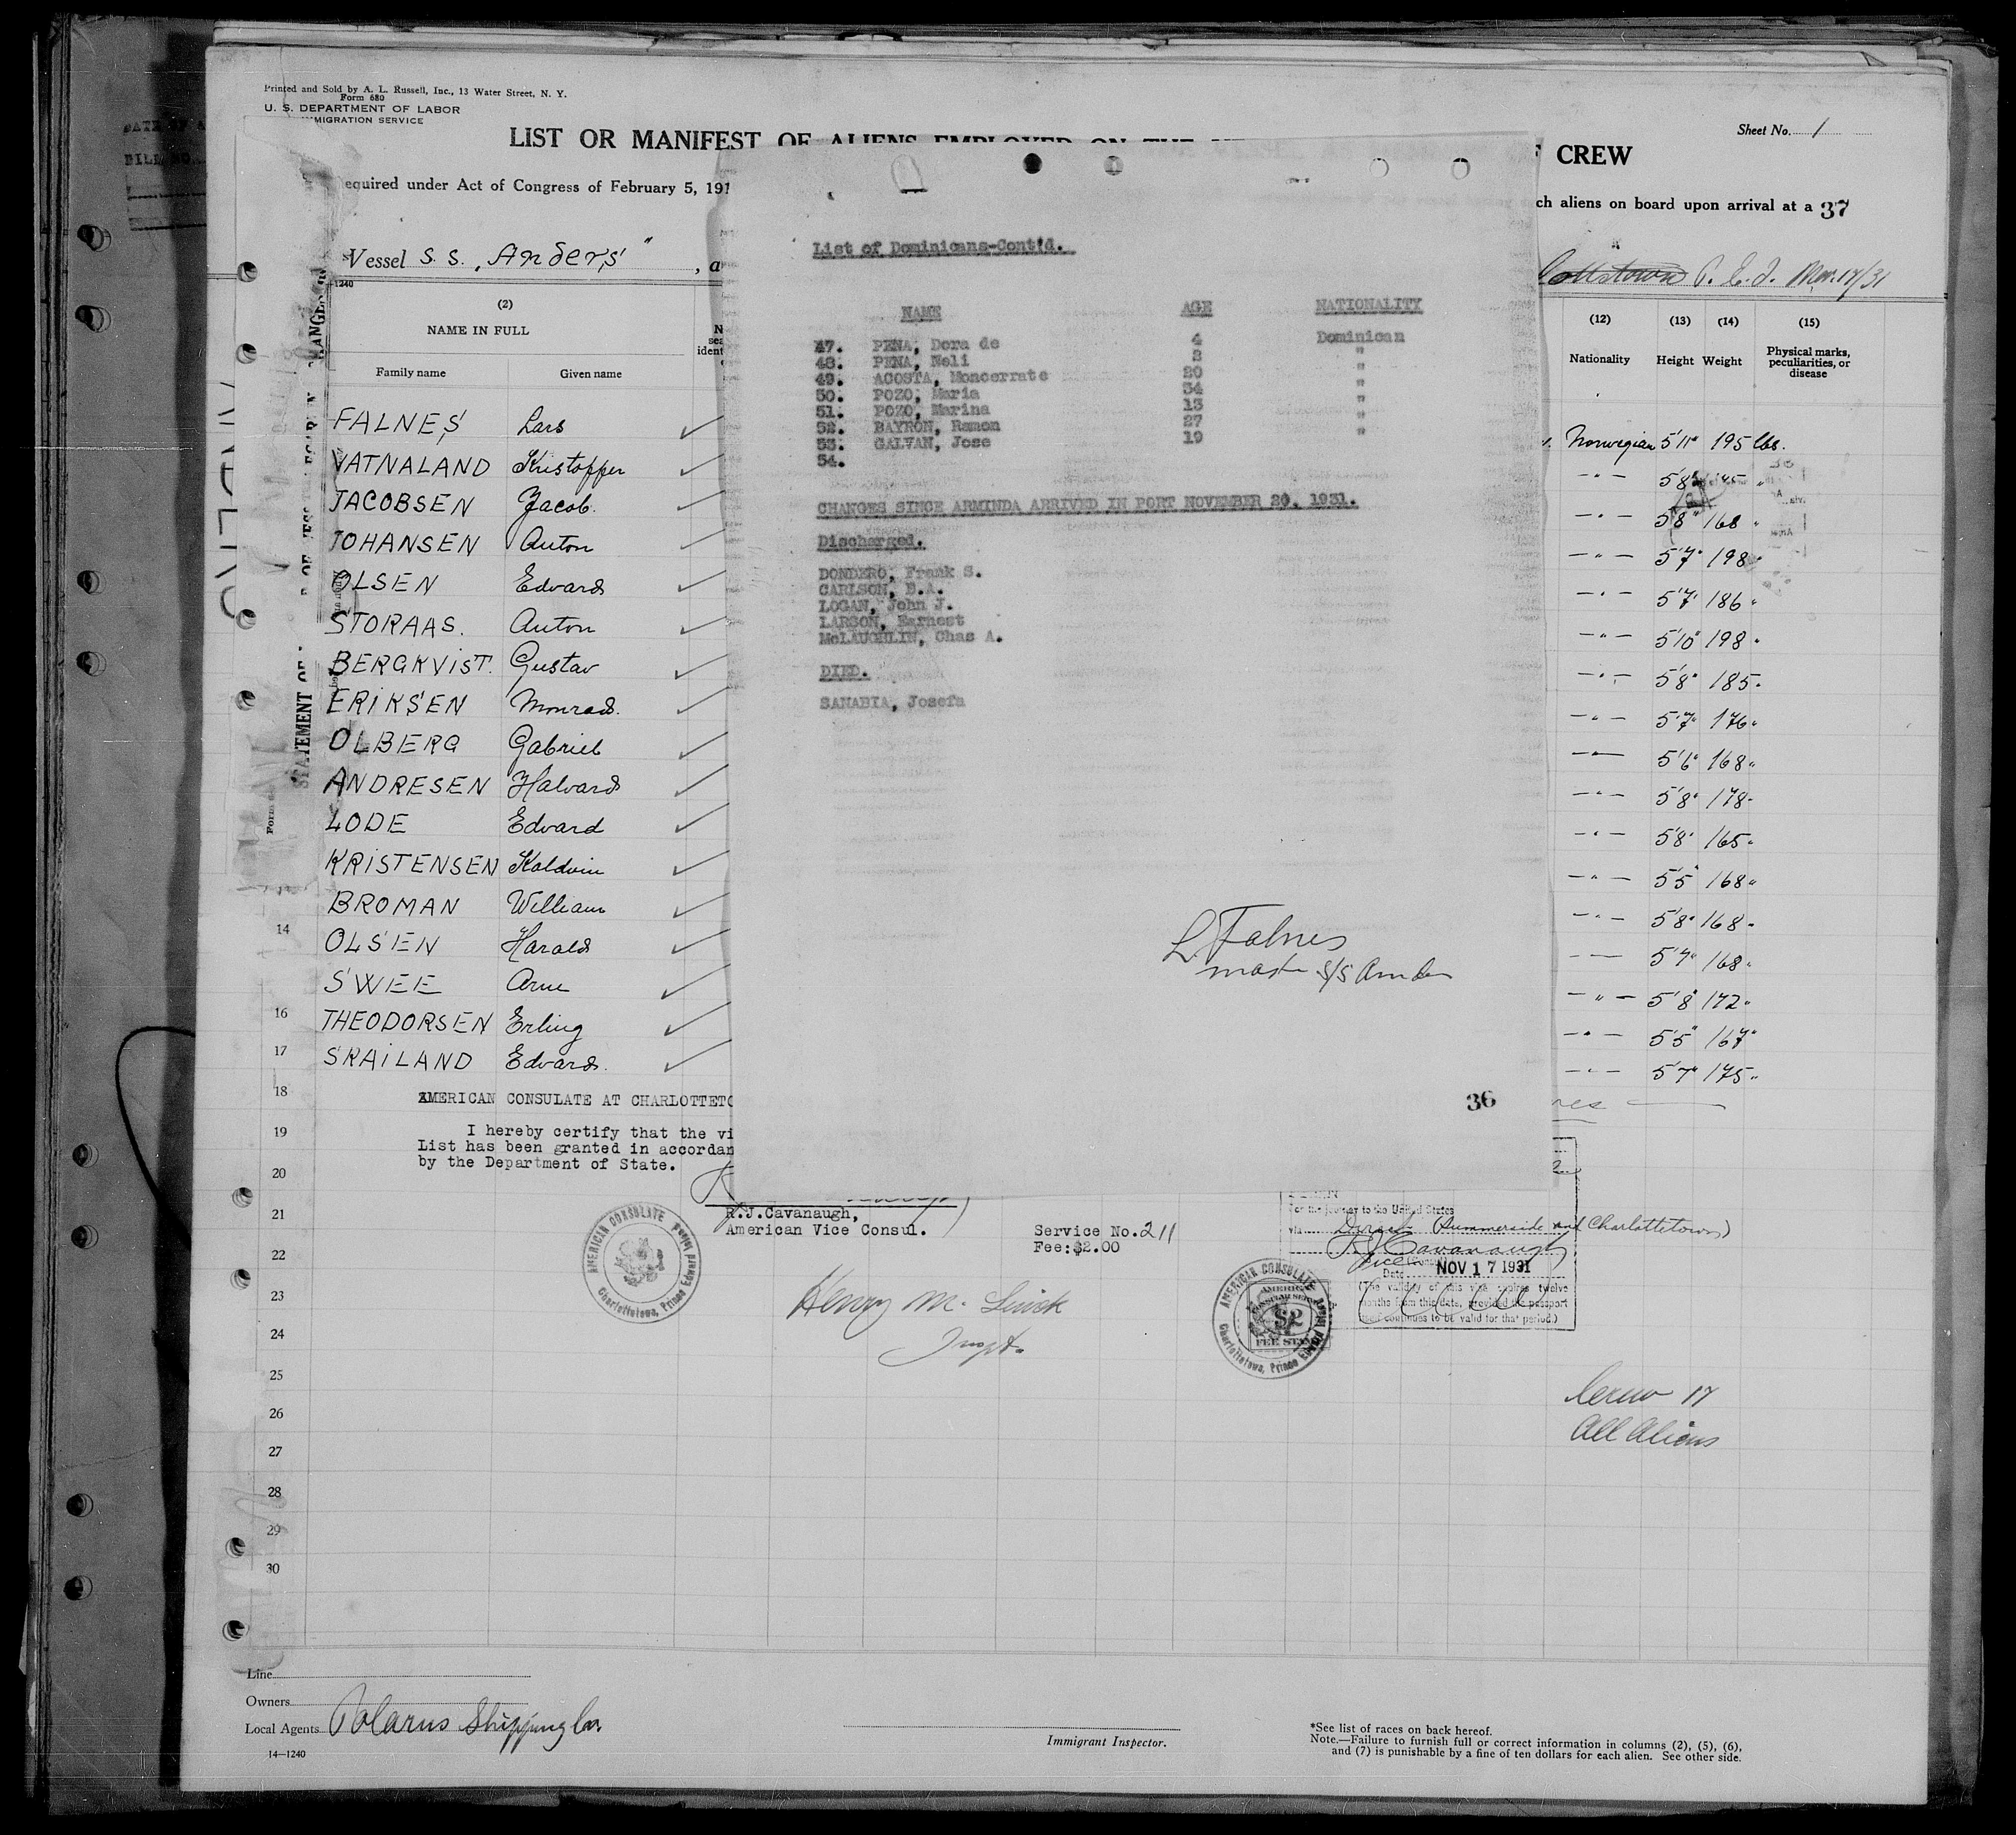 Printed and Sold by A. L. Russell, Inc., 13 Water Street, N. Y.
Form 680
U. S. DEPARTMENT OF LABOR
IMMIGRATION SERVICE
Sheet No. 1
LIST OR MANIFEST OF ALIENS EMPLOYED ON THE
CREW
equired under Act of Congress of February 5, 191
ch aliens on board upon arrival at a 37
Vessel S. S. "Anders", a
P. E. I. Nov. 17/31
1240
(2)
NAME IN FULL
Family name Given name
(12) (13) (14) (15)
Nationality Height Weight Physical marks, peculiarities, or disease
FALNES Lars Norwegian 5'11" 195 lbs.
VATNALAND Kristoffer
JACOBSEN Jacob. 5'8" 168 "
JOHANSEN Anton 5'7" 198 "
OLSEN Edvard 5'7" 186 "
STORAAS. Anton 5'10" 198 "
BERGKVIST. Gustav 5'8" 185 "
ERIKSEN Monrad. 5'7" 176 "
OLBERG Gabriel 5'6" 168 "
ANDRESEN Halvard 5'8" 178 "
LODE Edvard 5'8" 165 "
KRISTENSEN Kaldvin 5'5" 168 "
BROMAN William 5'8" 168 "
14 OLSEN Harald 5'7" 168 "
SWEE Arne 5'8" 172 "
16 THEODORSEN Erling 5'5" 167 "
17 SKAILAND Edvard. 5'7" 175 "
List of Dominicans-Cont'd.
NAME AGE NATIONALITY
47. PENA, Dora de 4 Dominican
48. PENA, Neli 2 "
49. ACOSTA, Moncerrate 20 "
50. POZO, Maria 34 "
51. POZO, Marina 13 "
52. BAYRON, Ramon 27 "
53. GALVAN, Jose 19 "
54.
CHANGES SINCE ARMINDA ARRIVED IN PORT NOVEMBER 20, 1931.
Discharged.
DONDERO, Frank S.
CARLSON, B.A.
LOGAN, John J.
LARSON, Earnest
McLAUGHLIN, Chas A.
DIED.
SANABIA, Josefa
L. Falnes
master S/S Anders
36
18 AMERICAN CONSULATE AT CHARLOTTETO
19 I hereby certify that the vi
List has been granted in accordan
20 by the Department of State.
21 R.J.Cavanaugh,
American Vice Consul.
Service No. 211
Fee:$2.00
For the journey to the United States
via Direct (Summerside and Charlottetown)
R J Cavanaugh
Vice Consul
Date NOV 17 1931
(The validity of this visa expires twelve
months from this date, provided the passport
continues to be valid for that period.)
AMERICAN CONSULATE
Charlottetown, Prince Edward Island
AMERICAN CONSULATE
Charlottetown, Prince Edward Island
$2
FEE STAMP
22
23
24
25
26
27
28
29
30
Henry M.
Inspt.
Crew 17
All Aliens
Line
Owners
Local Agents Polarus Shipping Co.
14—1240
Immigrant Inspector.
*See list of races on back hereof.
Note.—Failure to furnish full or correct information in columns (2), (5), (6),
and (7) is punishable by a fine of ten dollars for each alien. See other side.